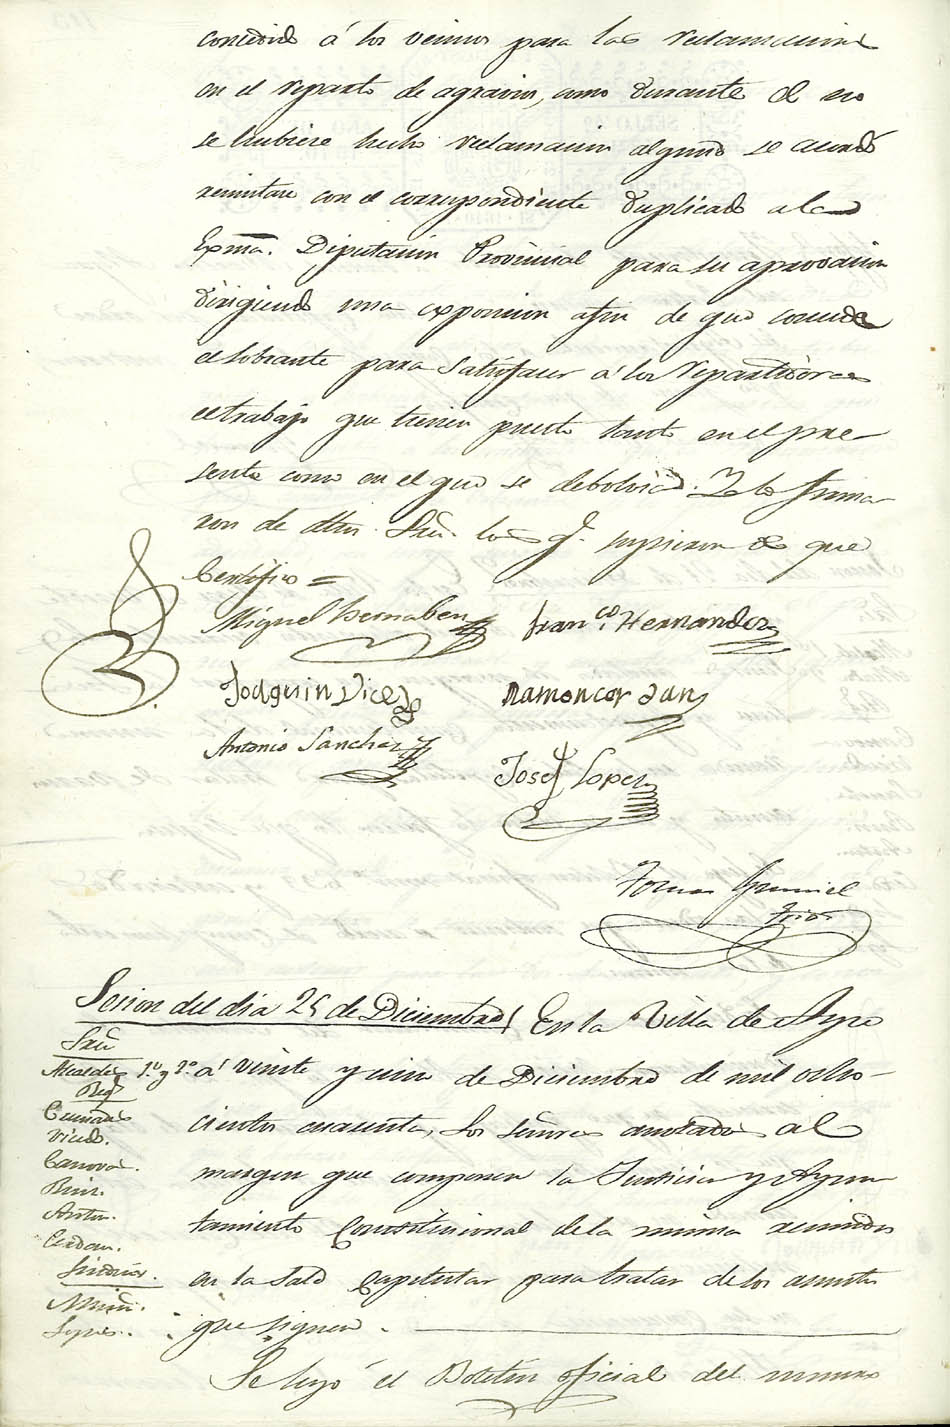 concedido á los vecinos para las reclamaciones
en el reparto de agravios, como durante el no
se hubiese hecho reclamacion alguna se acordó
remitase con el correspondiente duplicado a la
Exma. Diputacion Provincial para su aprovacion
dirigiendo una exposicion afin de que conceda
el sobrante para satisfacer á los repartidores
el trabajo que tienen puesto tanto en el pre-
sente como en el que se debolvió. Y lo firma
ron de dhos. Sres. los q.e supieron de que
Certifico =
Miguel Bernabeu Franco. Hernandez
Joaquin Vicedo Ramon Cerdan
Antonio Sanchez
José Lopez
Tomas
Frias
Sesion del dia 25 de Diciembre / En la Villa de Aspe
Sres.
Alcaldes 1.º y 2.º a veinte y cinco de Diciembre de mil ocho-
Reg.s
Cremades cientos cuarenta, los señores anotados al
Vicedo.
Canovas. margen que componen la Justicia y Ayun
Ruiz.
Anton. tamiento Constitucional de la misma reunidos
Cerdan.
Sindicos. en la sala Capitular para tratar de los asuntos
Lopez. que siguen. -
Se leyó el Boletin oficial del numero